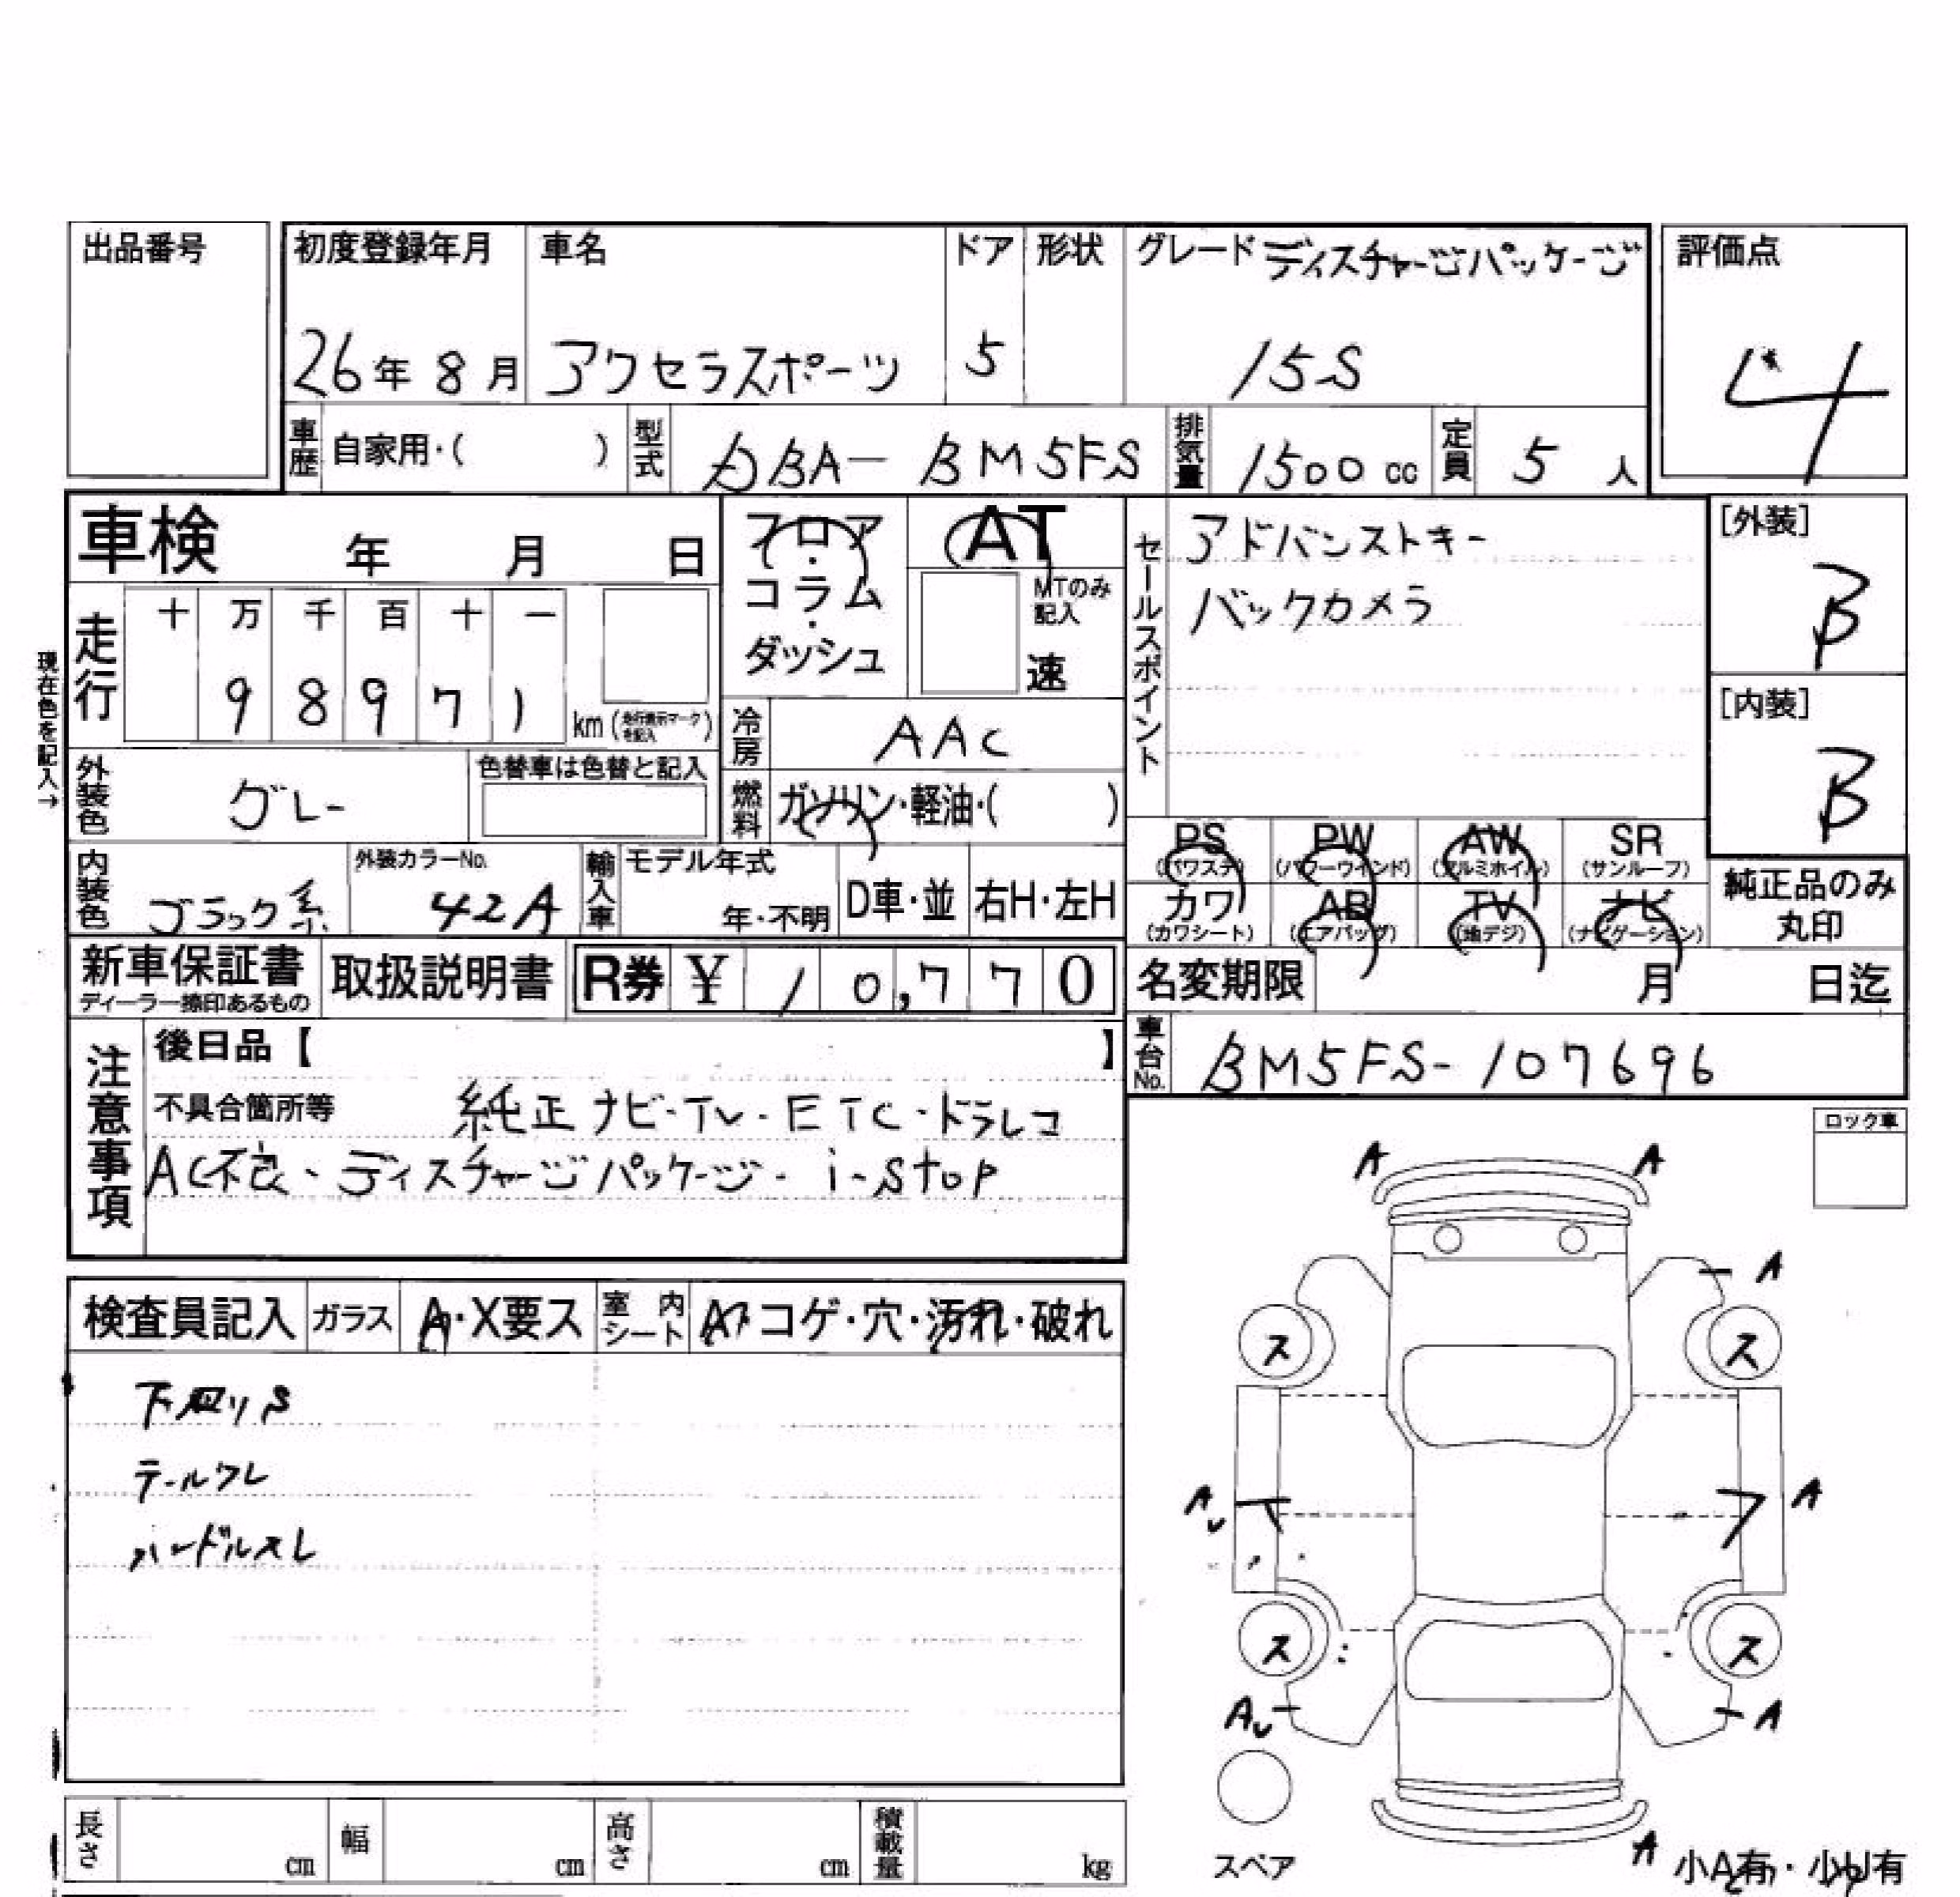 出品番号
初度登録年月 車名 ドア 形状 グレード ディスチャージパッケージ 評価点
26年 8月 アクセラスポーツ 5 15S 4
車歴 自家用・( ) 型式 DBA- BM5FS 排気量 1500cc 定員 5人
車検 年 月 日
フロア・コラム・ダッシュ
AT
MTのみ記入
速
セールスポイント
アドバンストキー
バックカメラ
[外装]
B
[内装]
B
現在色を記入→
走行 十 万 千 百 十 一
9 8 9 7 1 km (走行表示マークを記入)
冷房 AAC
外装色 グレー 色替車は色替と記入
燃料 ガソリン・軽油・( )
内装色 ブラック系 外装カラーNo. 42A
輸入車 モデル年式 年・不明 D車・並 右H・左H
PS (パワステ) PW (パワーウインド) AW (アルミホイル) SR (サンルーフ)
カワ (カワシート) AB (エアバッグ) TV (地デジ) ナビ (ナビゲーション)
純正品のみ
丸印
新車保証書 ディーラー捺印あるもの 取扱説明書 R券 ¥ 10,770
名変期限 月 日迄
車台No. BM5FS-107696
注意事項
後日品【 】
不具合箇所等 純正ナビ・TV・ETC・ドラレコ
AC不良、ディスチャージパッケージ・i-stop
ロック車
検査員記入 ガラス A・X要ス 室内シート コゲ・穴・汚れ・破れ
下回りS
テールワレ
ハンドルスレ
A A
A
ス ス
A A
ス ス
A A
スペア
A 小A有・小U有
長さ cm 幅 cm 高さ cm 積載量 kg